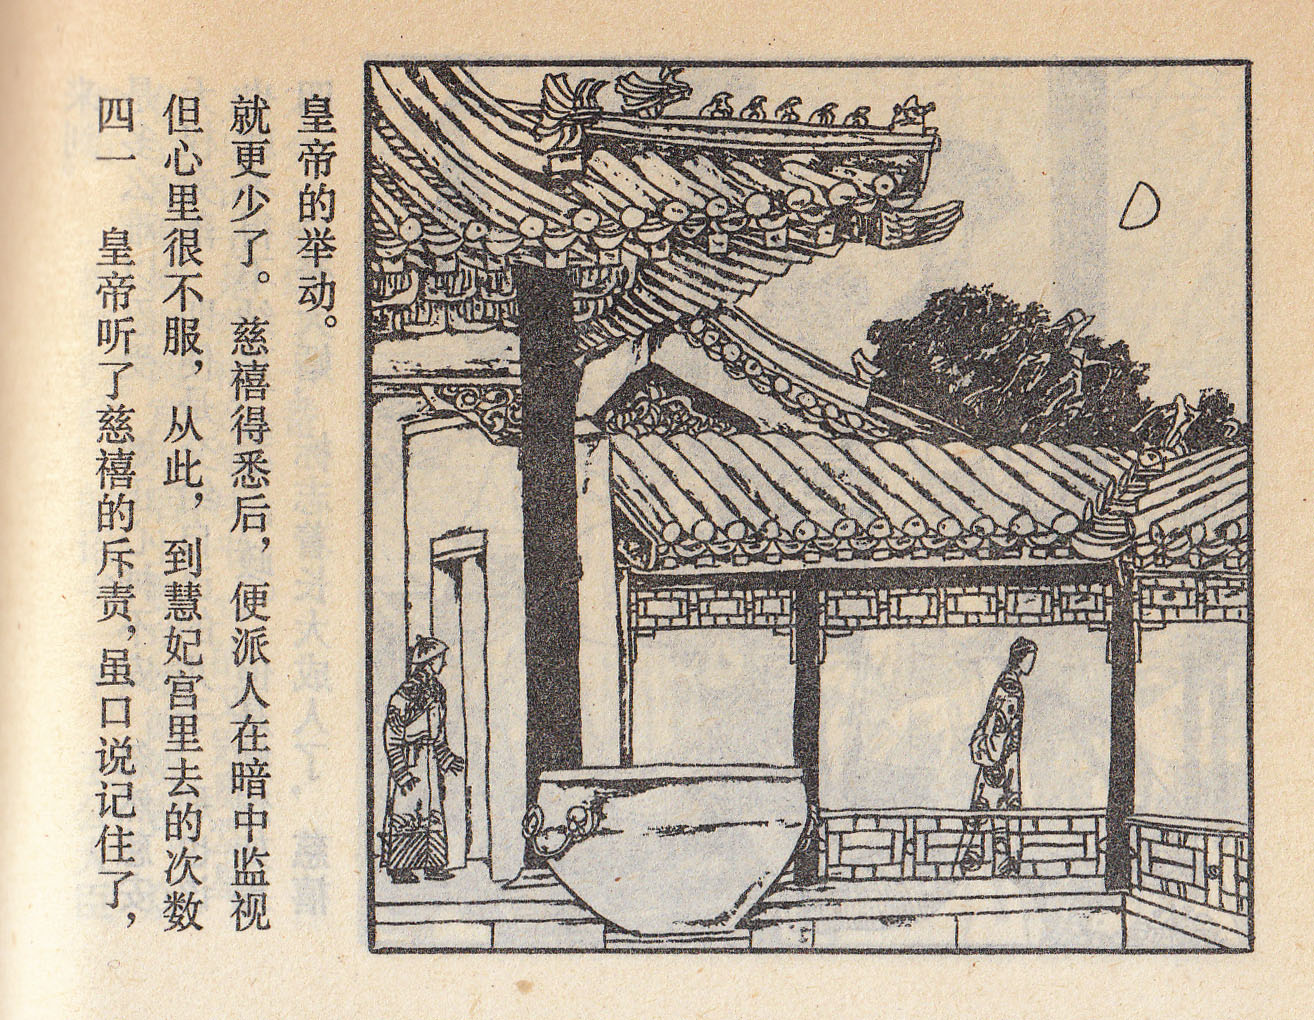 四一　皇帝听了慈禧的斥责，虽口说记住了，
但心里很不服，从此，到慧妃宫里去的次数
就更少了。慈禧得悉后，便派人在暗中监视
皇帝的举动。